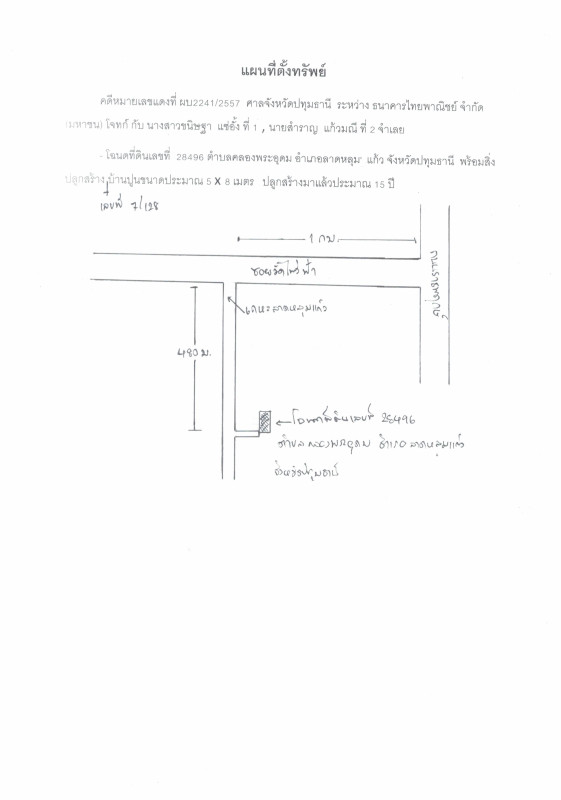 แผนที่ตั้งทรัพย์
คดีหมายเลขแดงที่ ผบ2241/2557 ศาลจังหวัดปทุมธานี ระหว่าง ธนาคารไทยพาณิชย์ จำกัด
(มหาชน) โจทก์ กับ นางสาวชนิษฐา แซ่อั้ง ที่ 1 , นายสำราญ แก้วมณี ที่ 2 จำเลย
- โฉนดที่ดินเลขที่ 28496 ตำบลคลองพระอุดม อำเภอลาดหลุม แก้ว จังหวัดปทุมธานี พร้อมสิ่ง
ปลูกสร้าง บ้านปูนขนาดประมาณ 5 X 8 เมตร ปลูกสร้างมาแล้วประมาณ 15 ปี
เลขที่ 7/128
1 กม.
ซอยวัดไพร่ฟ้า
เคหะลาดหลุมแก้ว
480 ม.
โฉนดที่ดินเลขที่ 28496
ตำบลคลองพระอุดม อำเภอลาดหลุมแก้ว
จังหวัดปทุมธานี